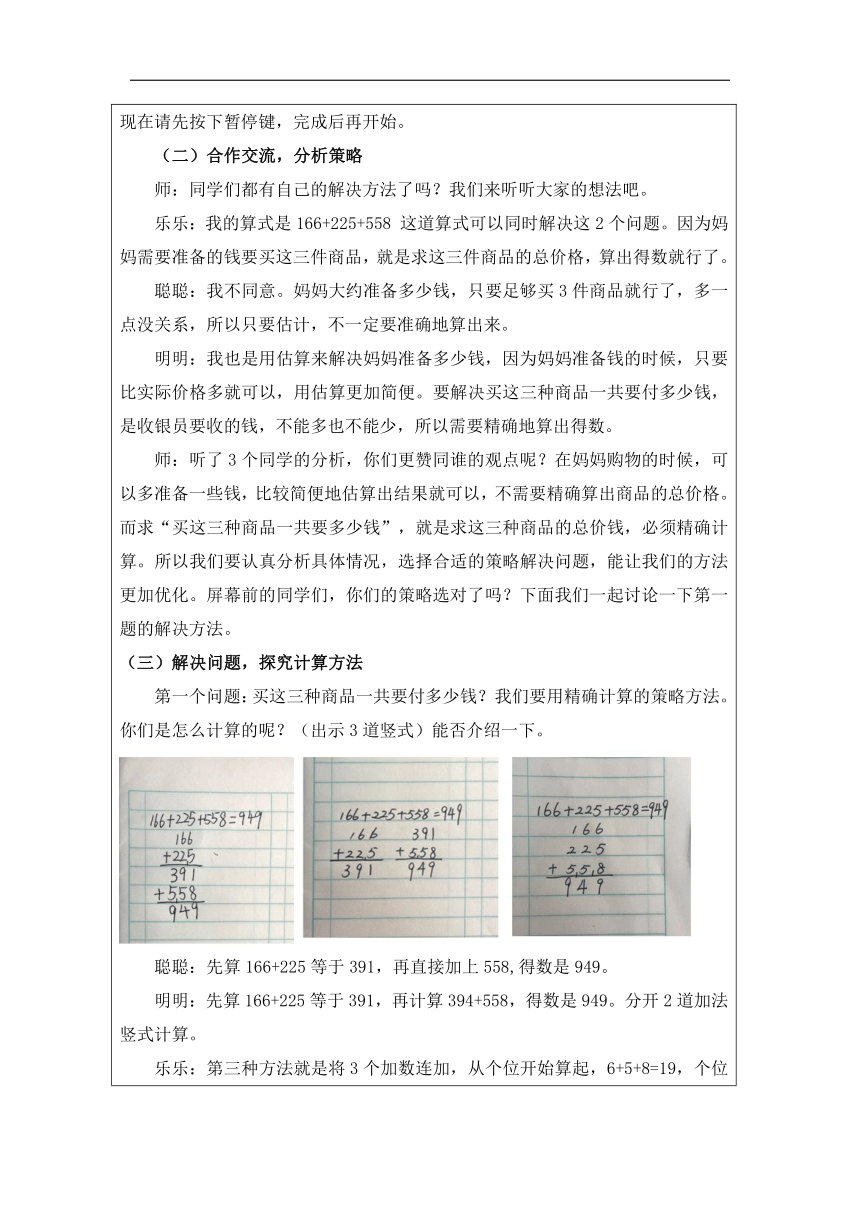 现在请先按下暂停键，完成后再开始。
（二）合作交流，分析策略
师：同学们都有自己的解决方法了吗？我们来听听大家的想法吧。
乐乐：我的算式是 166+225+558 这道算式可以同时解决这 2 个问题。因为妈
妈需要准备的钱要买这三件商品，就是求这三件商品的总价格，算出得数就行了。
聪聪：我不同意。妈妈大约准备多少钱，只要足够买 3 件商品就行了，多一
点没关系，所以只要估计，不一定要准确地算出来。
明明：我也是用估算来解决妈妈准备多少钱，因为妈妈准备钱的时候，只要
比实际价格多就可以，用估算更加简便。要解决买这三种商品一共要付多少钱，
是收银员要收的钱，不能多也不能少，所以需要精确地算出得数。
师：听了 3 个同学的分析，你们更赞同谁的观点呢？在妈妈购物的时候，可
以多准备一些钱，比较简便地估算出结果就可以，不需要精确算出商品的总价格。
而求“买这三种商品一共要多少钱”，就是求这三种商品的总价钱，必须精确计
算。所以我们要认真分析具体情况，选择合适的策略解决问题，能让我们的方法
更加优化。屏幕前的同学们，你们的策略选对了吗？下面我们一起讨论一下第一
题的解决方法。
（三）解决问题，探究计算方法
第一个问题：买这三种商品一共要付多少钱？我们要用精确计算的策略方法。
你们是怎么计算的呢？（出示 3 道竖式）能否介绍一下。
166+225+558=949
166
+225
391
+558
949
166+225+558=949
166 391
+225 +558
391 949
166+225+558=949
166
225
+ 558
949
聪聪：先算 166+225 等于 391，再直接加上 558,得数是 949。
明明：先算 166+225 等于 391，再计算 394+558，得数是 949。分开 2 道加法
竖式计算。
乐乐：第三种方法就是将 3 个加数连加，从个位开始算起，6+5+8=19，个位